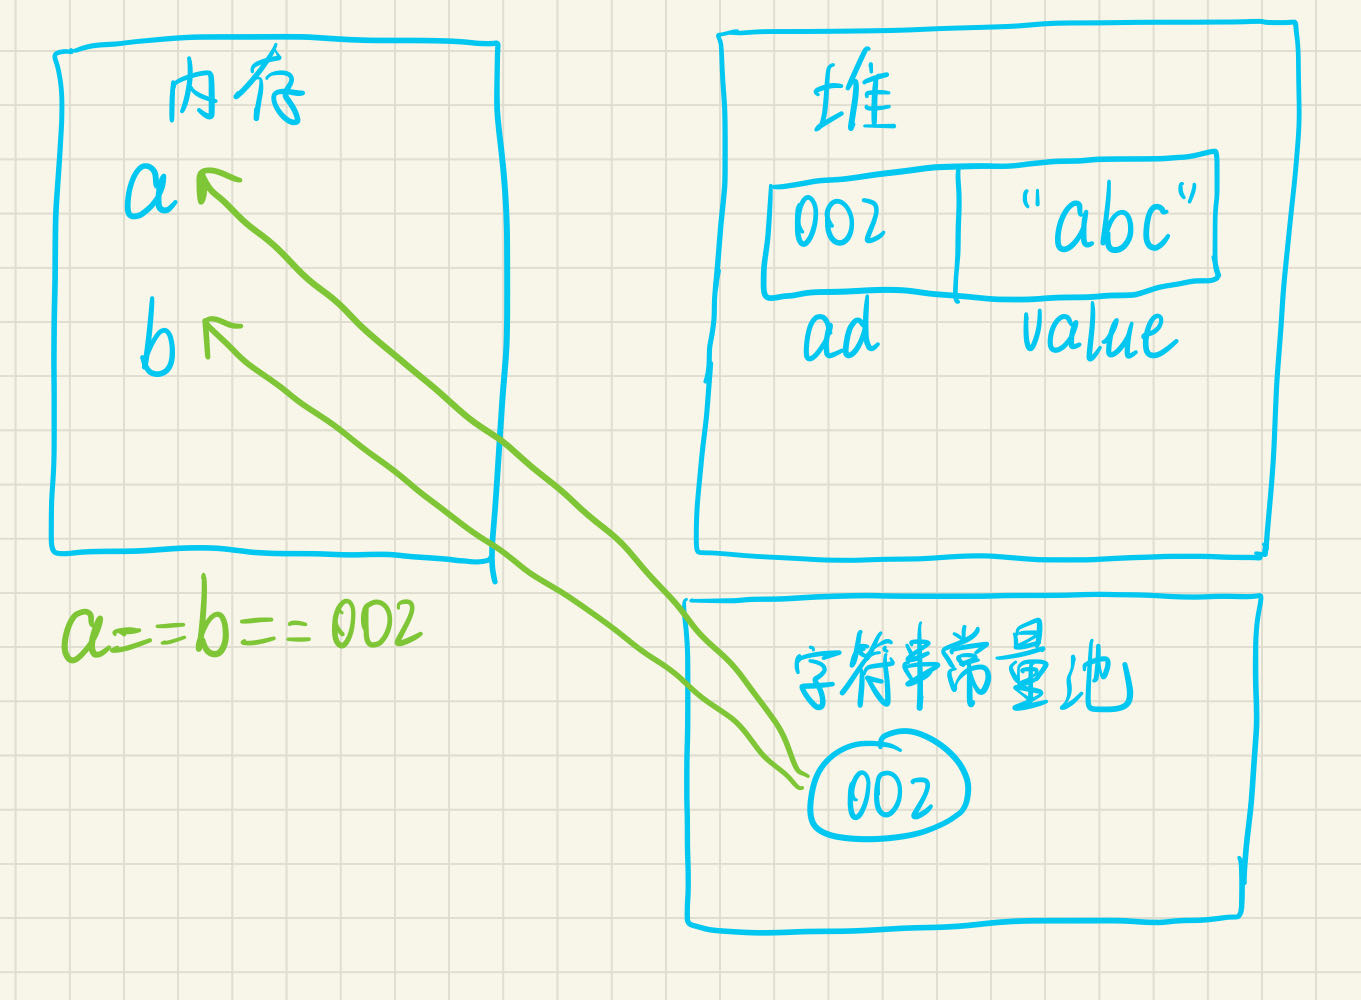 内存
a
b
a==b==002
堆
002 "abc"
ad value
字符串常量池
002